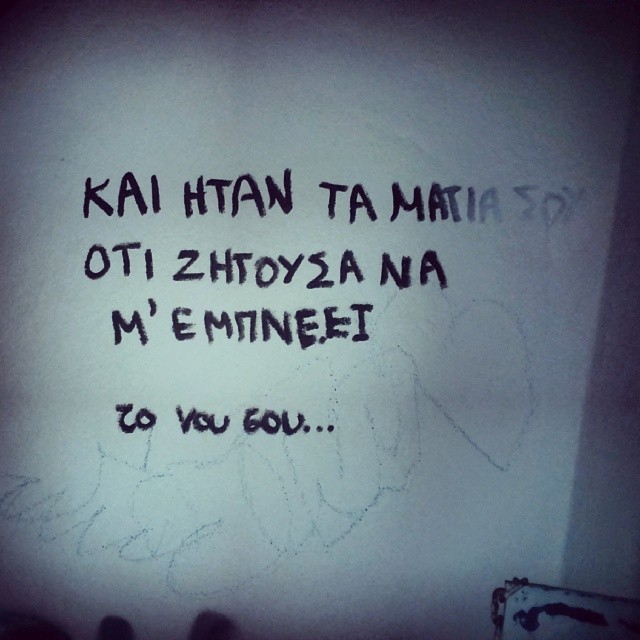 ΚΑΙ ΗΤΑΝ ΤΑ ΜΑΤΙΑ ΣΟΥ
ΟΤΙ ΖΗΤΟΥΣΑ ΝΑ
Μ' ΕΜΠΝΕΕΙ
το νου σου...